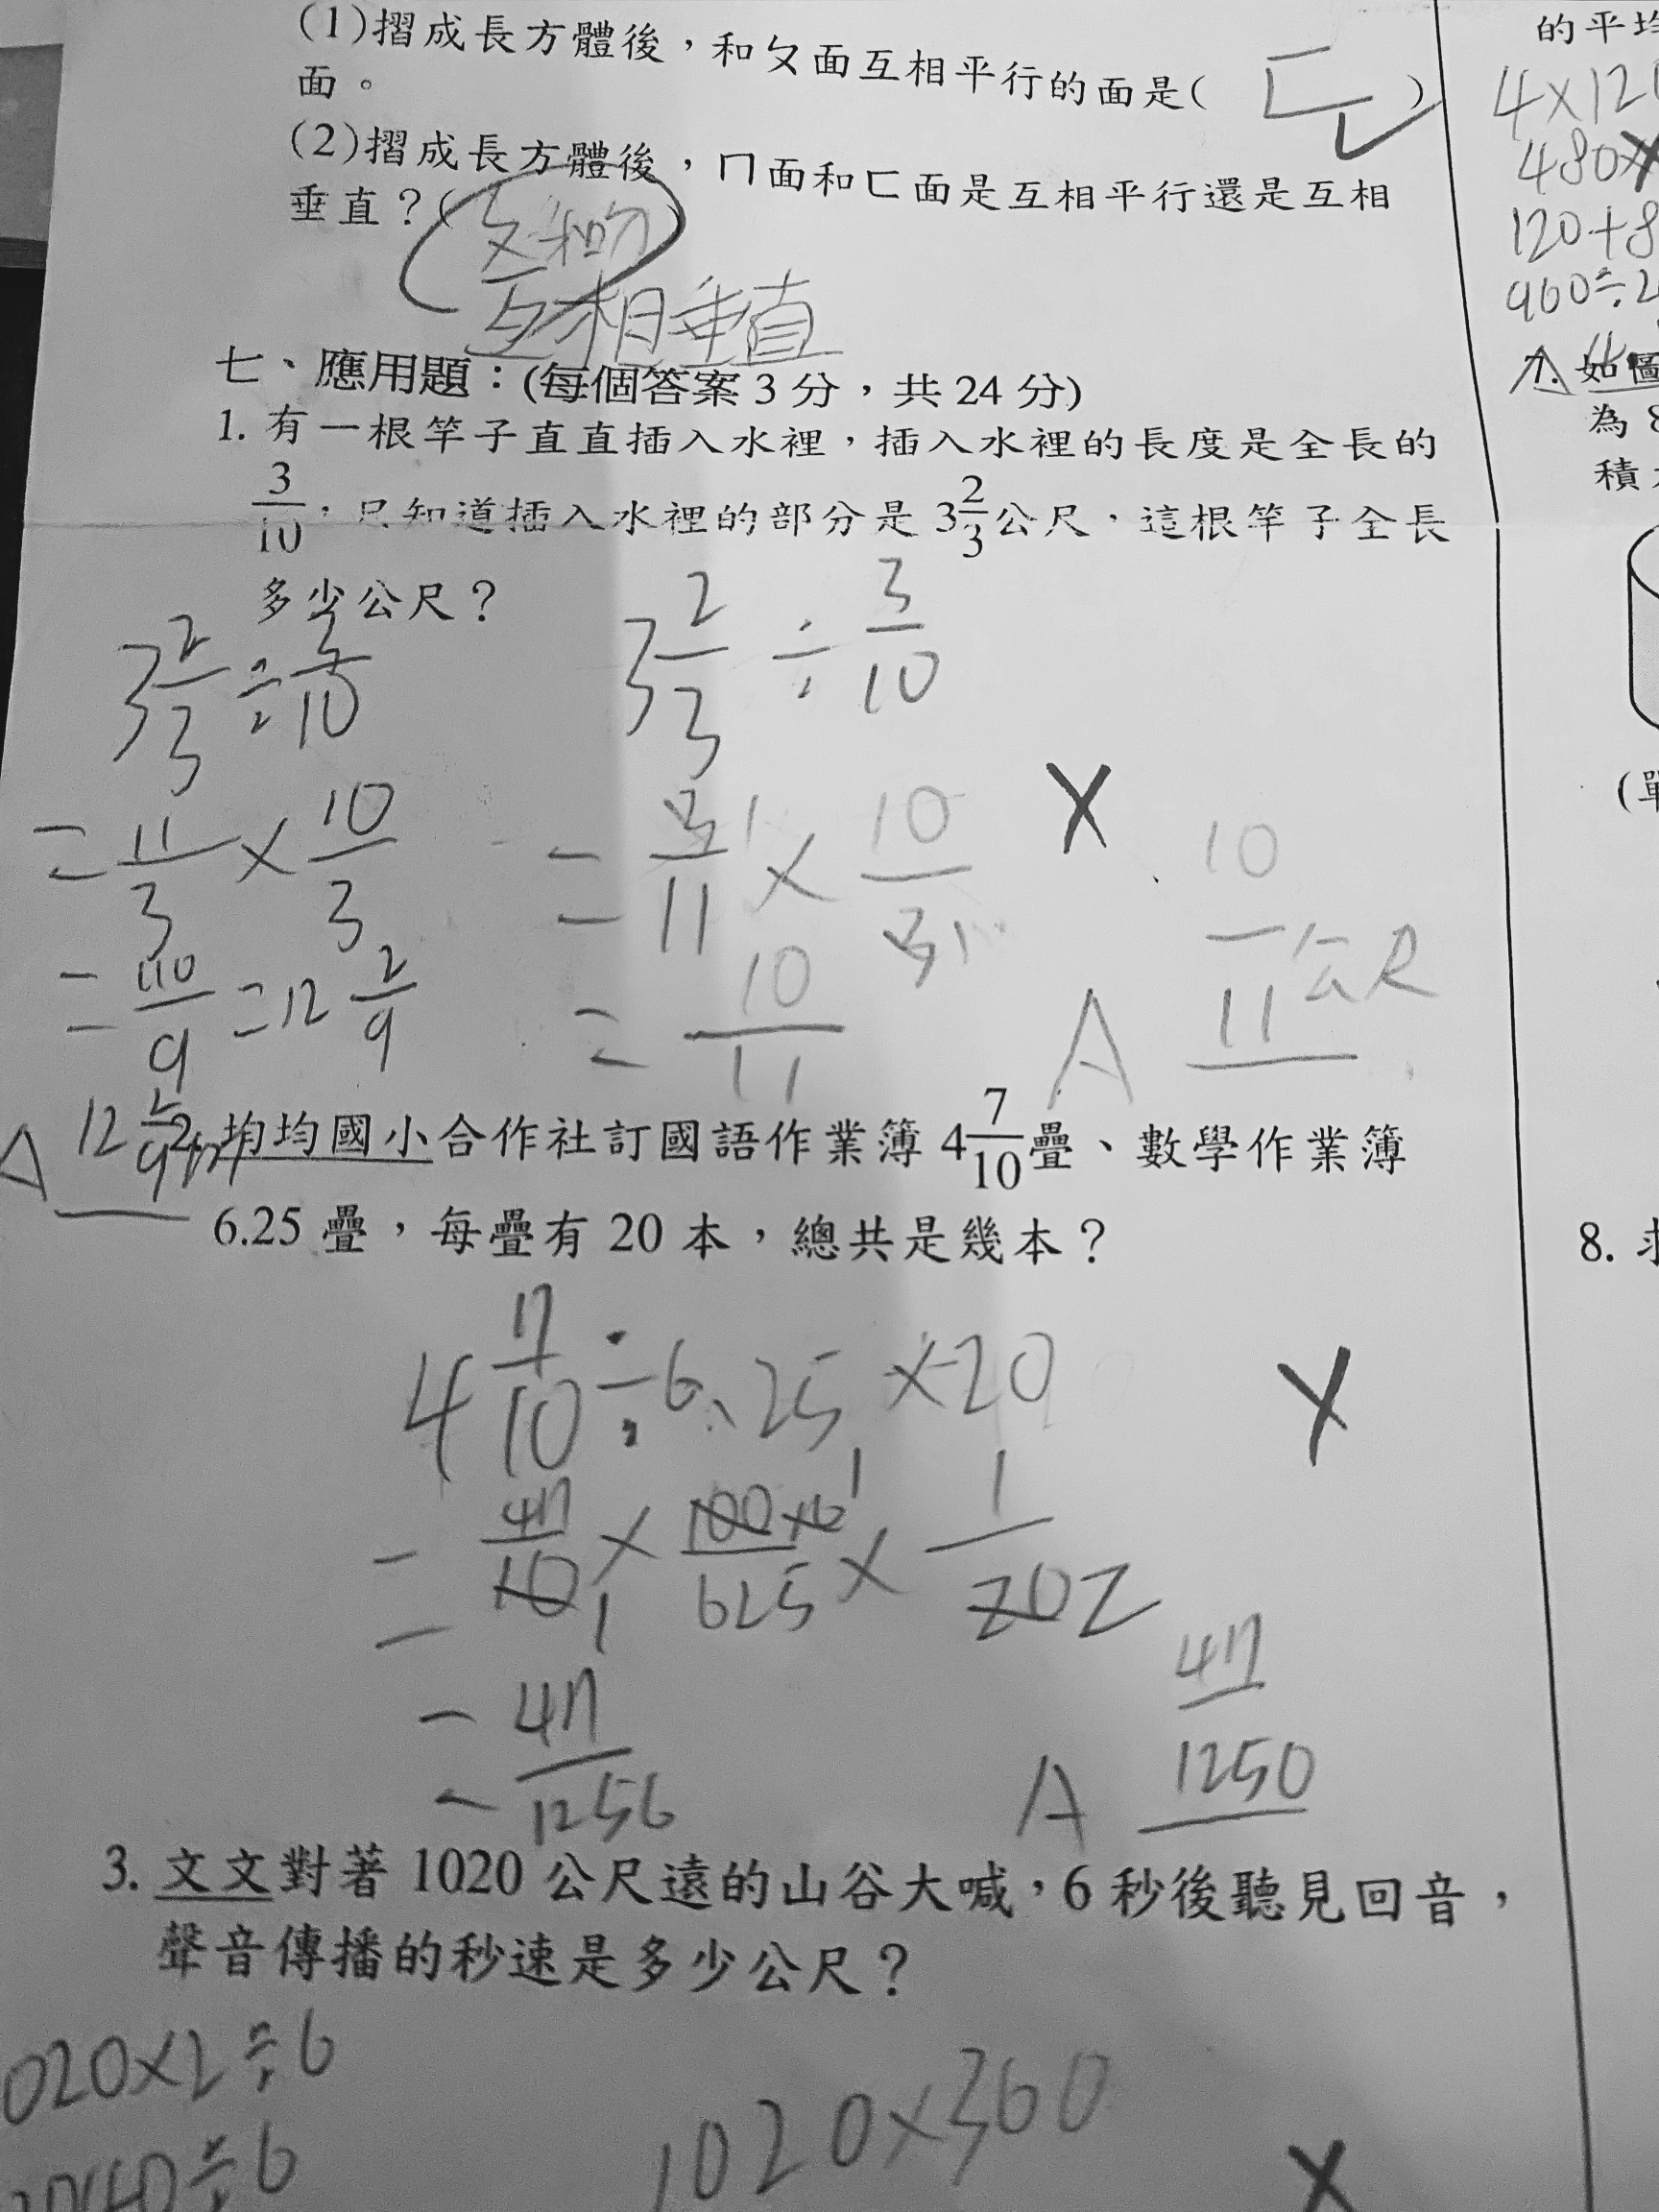 (1)摺成長方體後，和ㄆ面互相平行的面是( ㄈ )
面。
(2)摺成長方體後，ㄇ面和ㄈ面是互相平行還是互相
垂直？(
互相垂直
七、應用題：(每個答案 3 分，共 24 分)
1. 有一根竿子直直插入水裡，插入水裡的長度是全長的
3/10，只知道插入水裡的部分是 3 2/3 公尺，這根竿子全長
多少公尺？
3 2/3 ÷ 3/10
= 11/3 × 10/3
= 110/9 = 12 2/9
A 12 2/9
3 2/3 ÷ 3/10
= 3/11 × 10/3
= 10/11
A 10/11 公尺
X
2. 均均國小合作社訂國語作業簿 4 7/10 疊、數學作業簿
6.25 疊，每疊有 20 本，總共是幾本？
4 7/10 ÷ 6.25 × 20
X
= 47/10 × 100/625 × 1/20
= 47/1250
A 47/1250
3. 文文對著 1020 公尺遠的山谷大喊，6 秒後聽見回音，
聲音傳播的秒速是多少公尺？
020×2÷6
40÷6
1020×360
X
的平均
4×12
480×
120+8
960÷2
7. 如圖
為 8
積
(單
8. 求